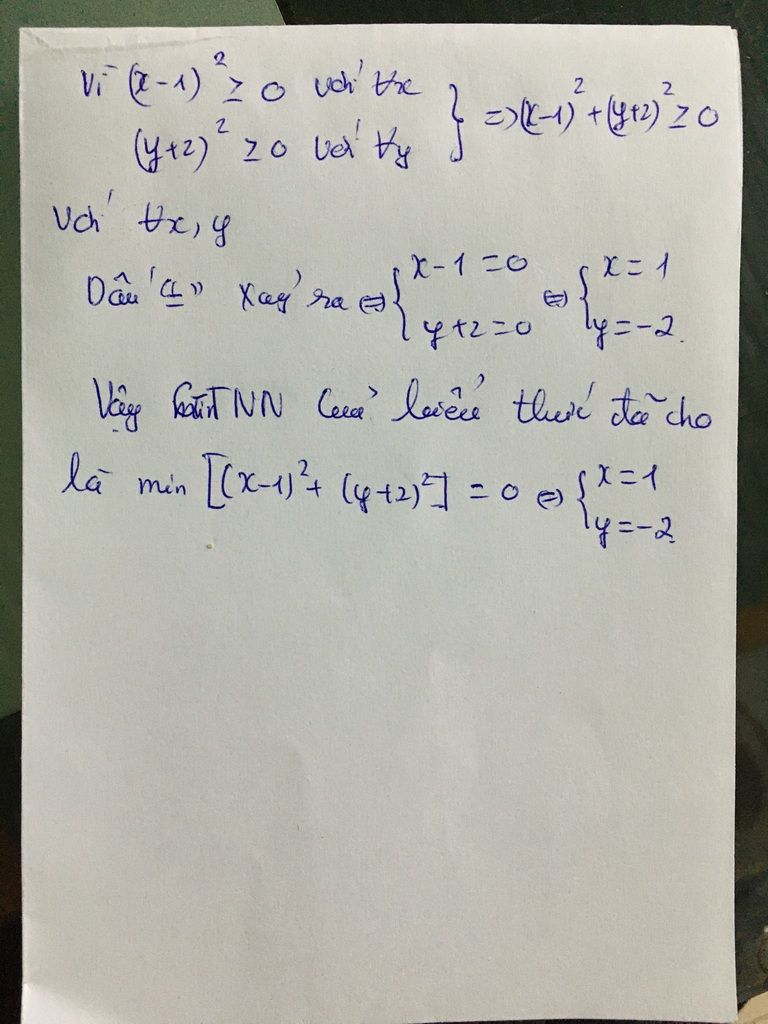 Vì (x-1)² ≥ 0 với ∀x
(y+2)² ≥ 0 với ∀y } => (x-1)² + (y+2)² ≥ 0
với ∀x, y
Dấu "=" xảy ra <=> { x-1 = 0 <=> { x = 1
y+2 = 0 y = -2.
Vậy GTNN của biểu thức đã cho
là min [(x-1)² + (y+2)²] = 0 <=> { x = 1
y = -2